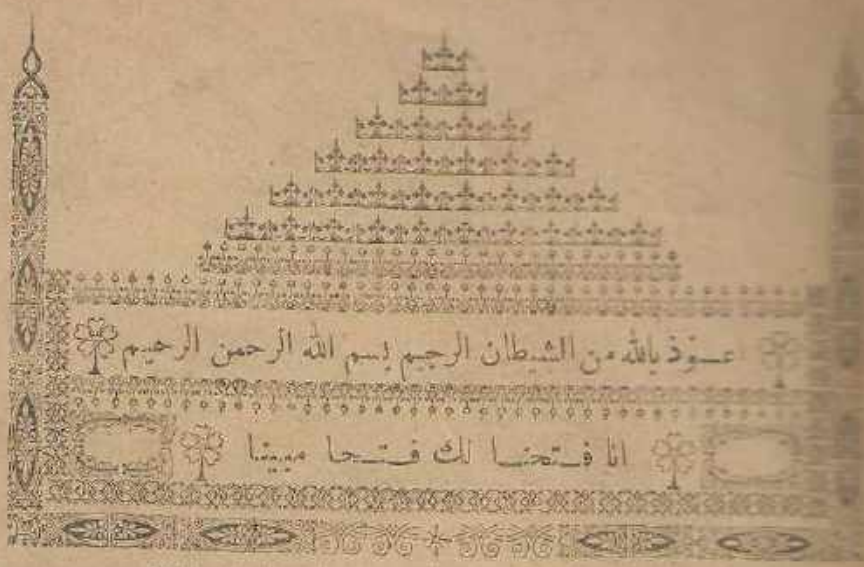 عسوذ بالله من الشيطان الرجيم بسم الله الرحمن الرحيم
انا فتحنا لك فتحا مبينا